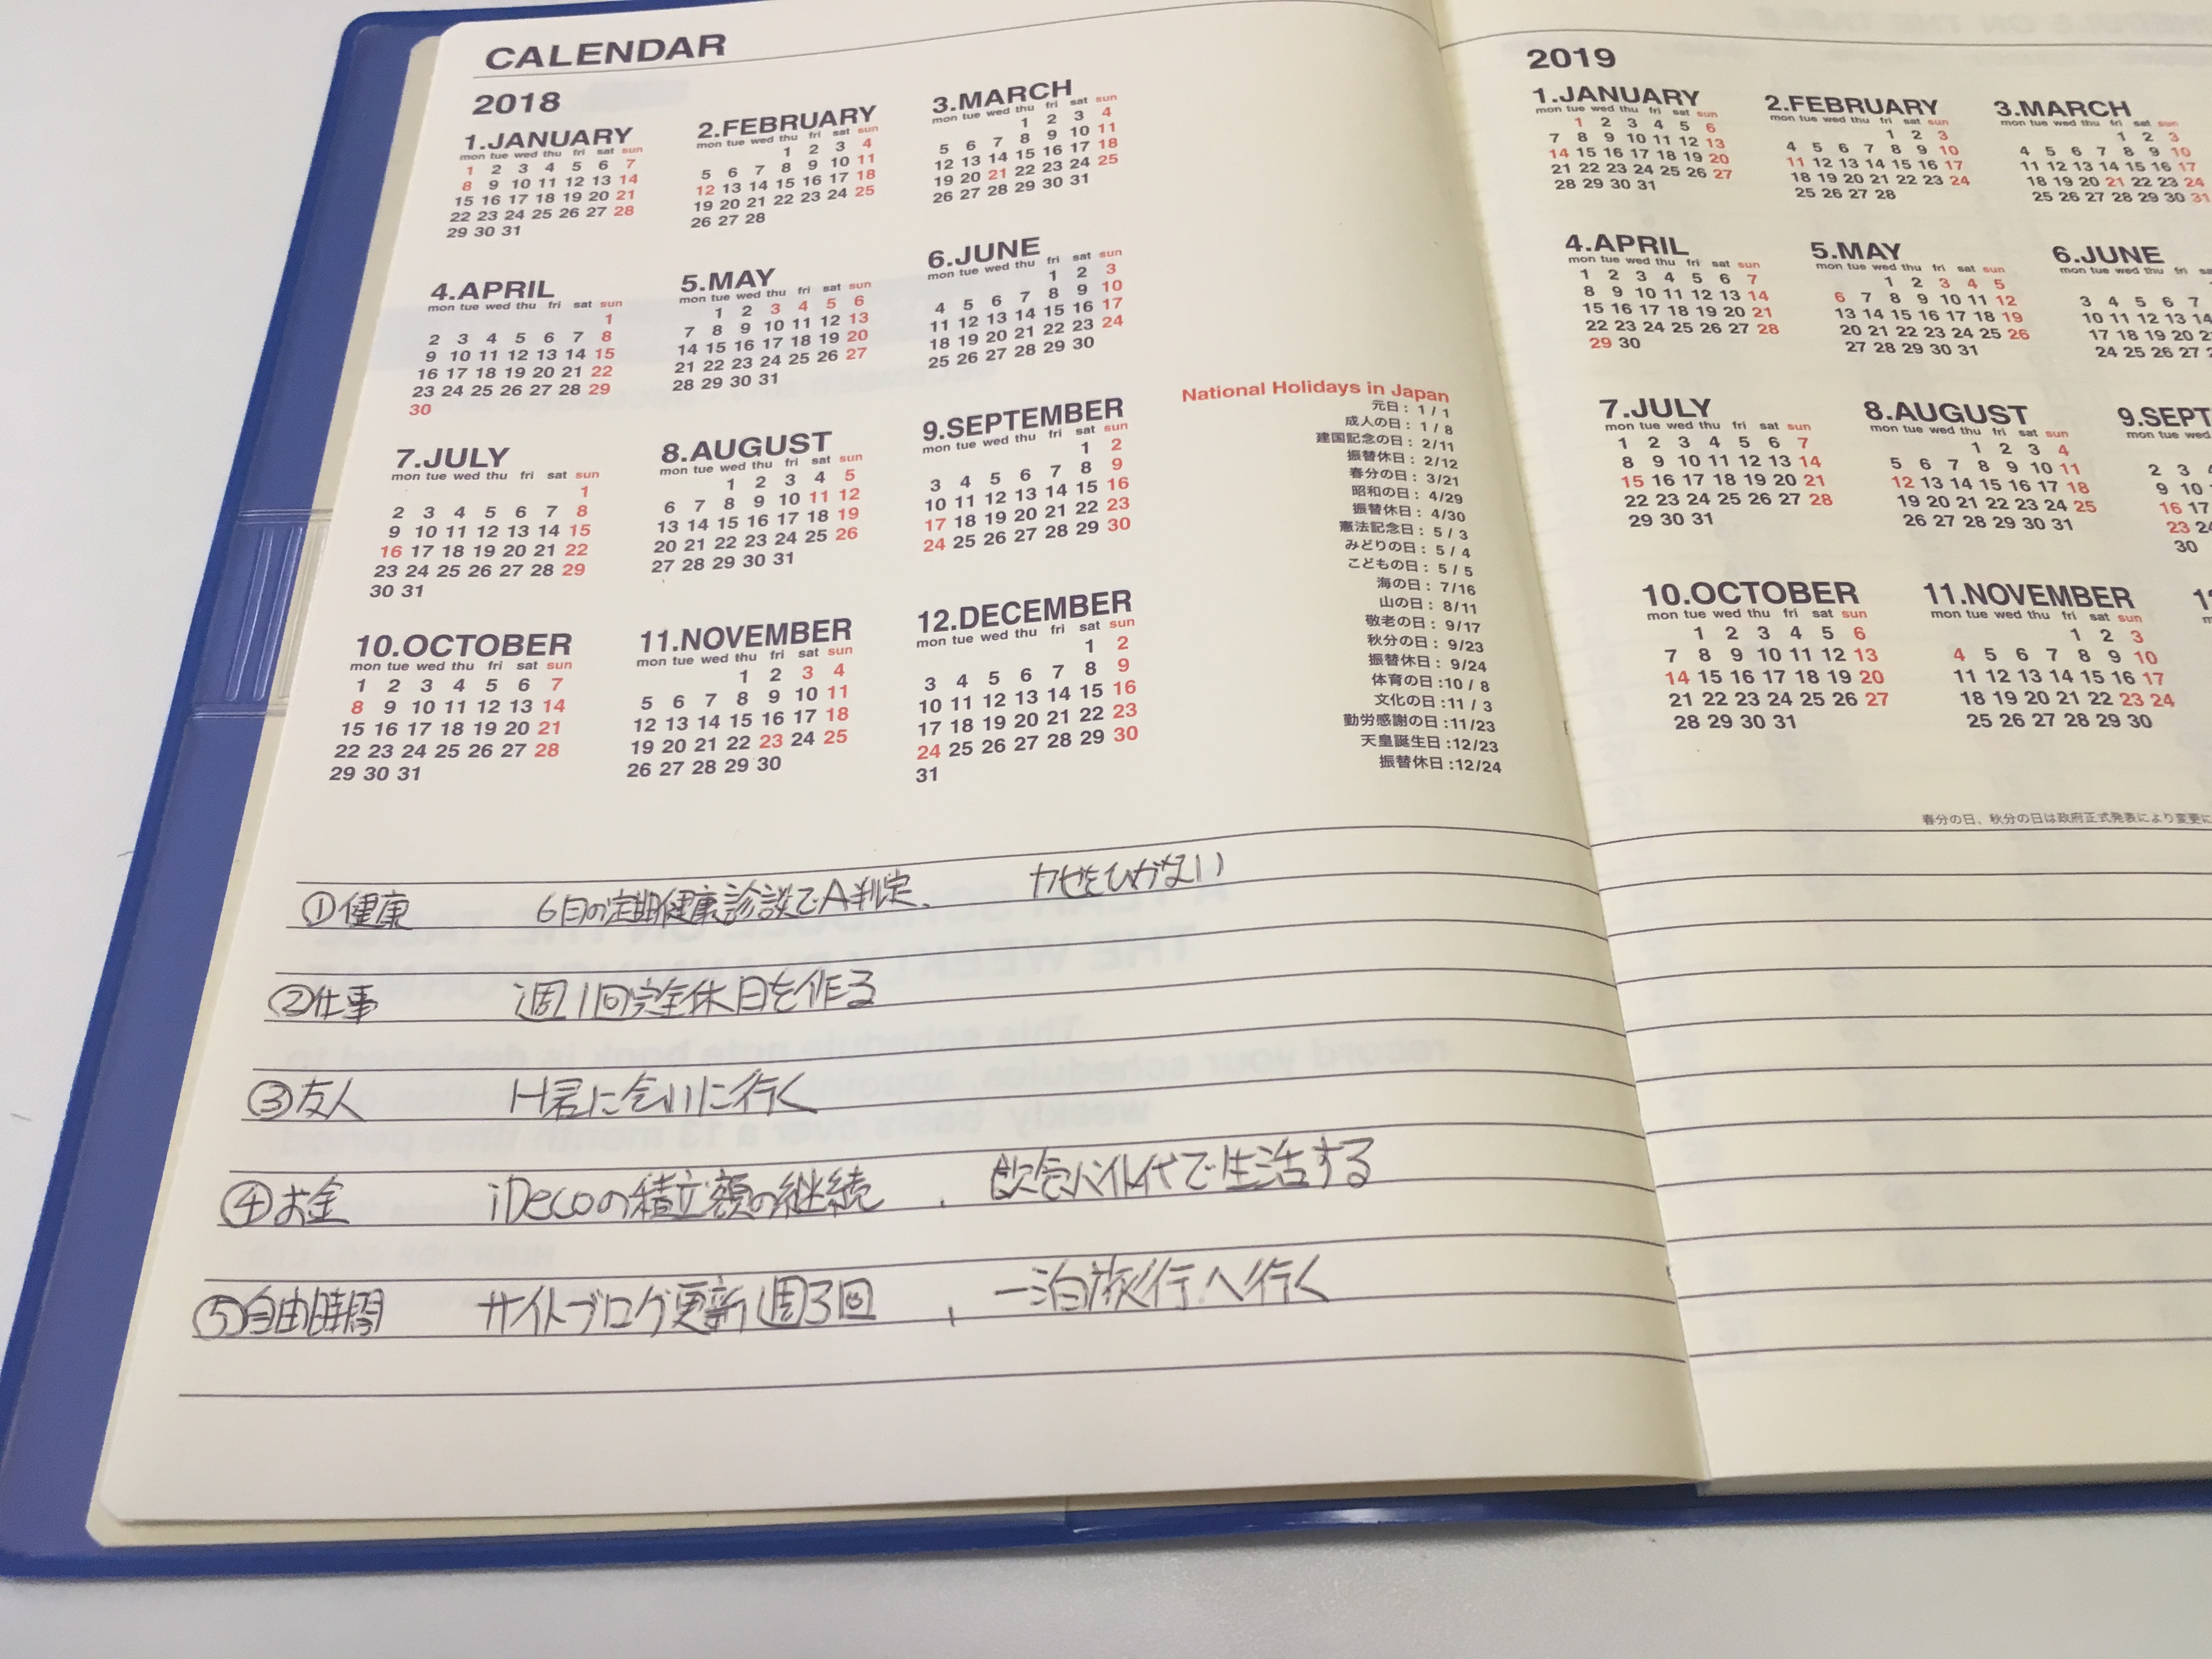 CALENDAR
2018
1.JANUARY
mon tue wed thu fri sat sun
1 2 3 4 5 6 7
8 9 10 11 12 13 14
15 16 17 18 19 20 21
22 23 24 25 26 27 28
29 30 31
2.FEBRUARY
mon tue wed thu fri sat sun
1 2 3 4
5 6 7 8 9 10 11
12 13 14 15 16 17 18
19 20 21 22 23 24 25
26 27 28
3.MARCH
mon tue wed thu fri sat sun
1 2 3 4
5 6 7 8 9 10 11
12 13 14 15 16 17 18
19 20 21 22 23 24 25
26 27 28 29 30 31
4.APRIL
mon tue wed thu fri sat sun
1
2 3 4 5 6 7 8
9 10 11 12 13 14 15
16 17 18 19 20 21 22
23 24 25 26 27 28 29
30
5.MAY
mon tue wed thu fri sat sun
1 2 3 4 5 6
7 8 9 10 11 12 13
14 15 16 17 18 19 20
21 22 23 24 25 26 27
28 29 30 31
6.JUNE
mon tue wed thu fri sat sun
1 2 3
4 5 6 7 8 9 10
11 12 13 14 15 16 17
18 19 20 21 22 23 24
25 26 27 28 29 30
7.JULY
mon tue wed thu fri sat sun
1
2 3 4 5 6 7 8
9 10 11 12 13 14 15
16 17 18 19 20 21 22
23 24 25 26 27 28 29
30 31
8.AUGUST
mon tue wed thu fri sat sun
1 2 3 4 5
6 7 8 9 10 11 12
13 14 15 16 17 18 19
20 21 22 23 24 25 26
27 28 29 30 31
9.SEPTEMBER
mon tue wed thu fri sat sun
1 2
3 4 5 6 7 8 9
10 11 12 13 14 15 16
17 18 19 20 21 22 23
24 25 26 27 28 29 30
10.OCTOBER
mon tue wed thu fri sat sun
1 2 3 4 5 6 7
8 9 10 11 12 13 14
15 16 17 18 19 20 21
22 23 24 25 26 27 28
29 30 31
11.NOVEMBER
mon tue wed thu fri sat sun
1 2 3 4
5 6 7 8 9 10 11
12 13 14 15 16 17 18
19 20 21 22 23 24 25
26 27 28 29 30
12.DECEMBER
mon tue wed thu fri sat sun
1 2
3 4 5 6 7 8 9
10 11 12 13 14 15 16
17 18 19 20 21 22 23
24 25 26 27 28 29 30
31
National Holidays in Japan
元日: 1 / 1
成人の日: 1 / 8
建国記念の日: 2/11
振替休日: 2/12
春分の日: 3/21
昭和の日: 4/29
振替休日: 4/30
憲法記念日: 5 / 3
みどりの日: 5 / 4
こどもの日: 5 / 5
海の日: 7/16
山の日: 8/11
敬老の日: 9/17
秋分の日: 9/23
振替休日: 9/24
体育の日:10 / 8
文化の日:11 / 3
勤労感謝の日:11/23
天皇誕生日:12/23
振替休日:12/24
①健康 6月の定期健康診談でA判定、 カゼをひかない
②仕事 週1回完全休日を作る
③友人 H君に会いに行く
④お金 iDecoの積立額の継続、 飲食バイト代で生活する
⑤自由時間 サイトブログ更新週3回、 一泊旅行へ行く
2019
1.JANUARY
mon tue wed thu fri sat sun
1 2 3 4 5 6
7 8 9 10 11 12 13
14 15 16 17 18 19 20
21 22 23 24 25 26 27
28 29 30 31
2.FEBRUARY
mon tue wed thu fri sat sun
1 2 3
4 5 6 7 8 9 10
11 12 13 14 15 16 17
18 19 20 21 22 23 24
25 26 27 28
3.MARCH
mon tue wed thu fri sat sun
1 2 3
4 5 6 7 8 9 10
11 12 13 14 15 16 17
18 19 20 21 22 23 24
25 26 27 28 29 30 31
4.APRIL
mon tue wed thu fri sat sun
1 2 3 4 5 6 7
8 9 10 11 12 13 14
15 16 17 18 19 20 21
22 23 24 25 26 27 28
29 30
5.MAY
mon tue wed thu fri sat sun
1 2 3 4 5
6 7 8 9 10 11 12
13 14 15 16 17 18 19
20 21 22 23 24 25 26
27 28 29 30 31
6.JUNE
mon tue wed thu fri
3 4 5 6 7
10 11 12 13 14
17 18 19 20
24 25 26 27
7.JULY
mon tue wed thu fri sat sun
1 2 3 4 5 6 7
8 9 10 11 12 13 14
15 16 17 18 19 20 21
22 23 24 25 26 27 28
29 30 31
8.AUGUST
mon tue wed thu fri sat sun
1 2 3 4
5 6 7 8 9 10 11
12 13 14 15 16 17 18
19 20 21 22 23 24 25
26 27 28 29 30 31
9.SEPT
mon tue
2 3
9 10
16 17
23
30
10.OCTOBER
mon tue wed thu fri sat sun
1 2 3 4 5 6
7 8 9 10 11 12 13
14 15 16 17 18 19 20
21 22 23 24 25 26 27
28 29 30 31
11.NOVEMBER
mon tue wed thu fri sat sun
1 2 3
4 5 6 7 8 9 10
11 12 13 14 15 16 17
18 19 20 21 22 23 24
25 26 27 28 29 30
春分の日、秋分の日は政府正式発表により変更に